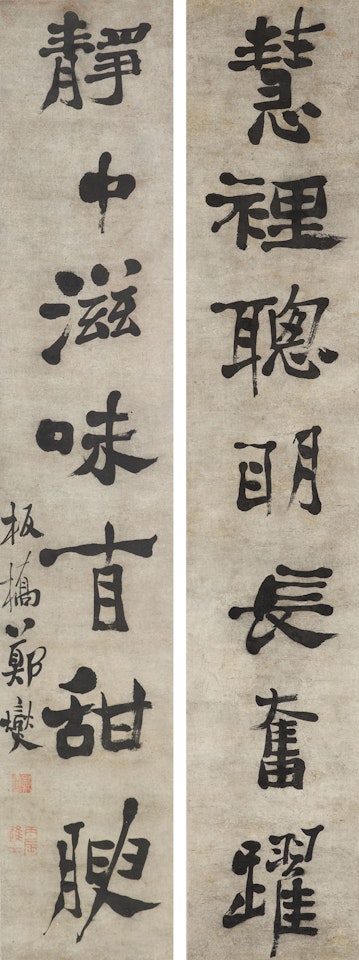 慧裡聰明長奮躍
靜中滋味自甜腴
板橋鄭燮